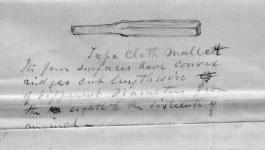 Tapa Cloth Mallet
Its four surfaces have convex
ridges cut lengthwise
of different diameters from
the eighth to the sixteenth of
an inch